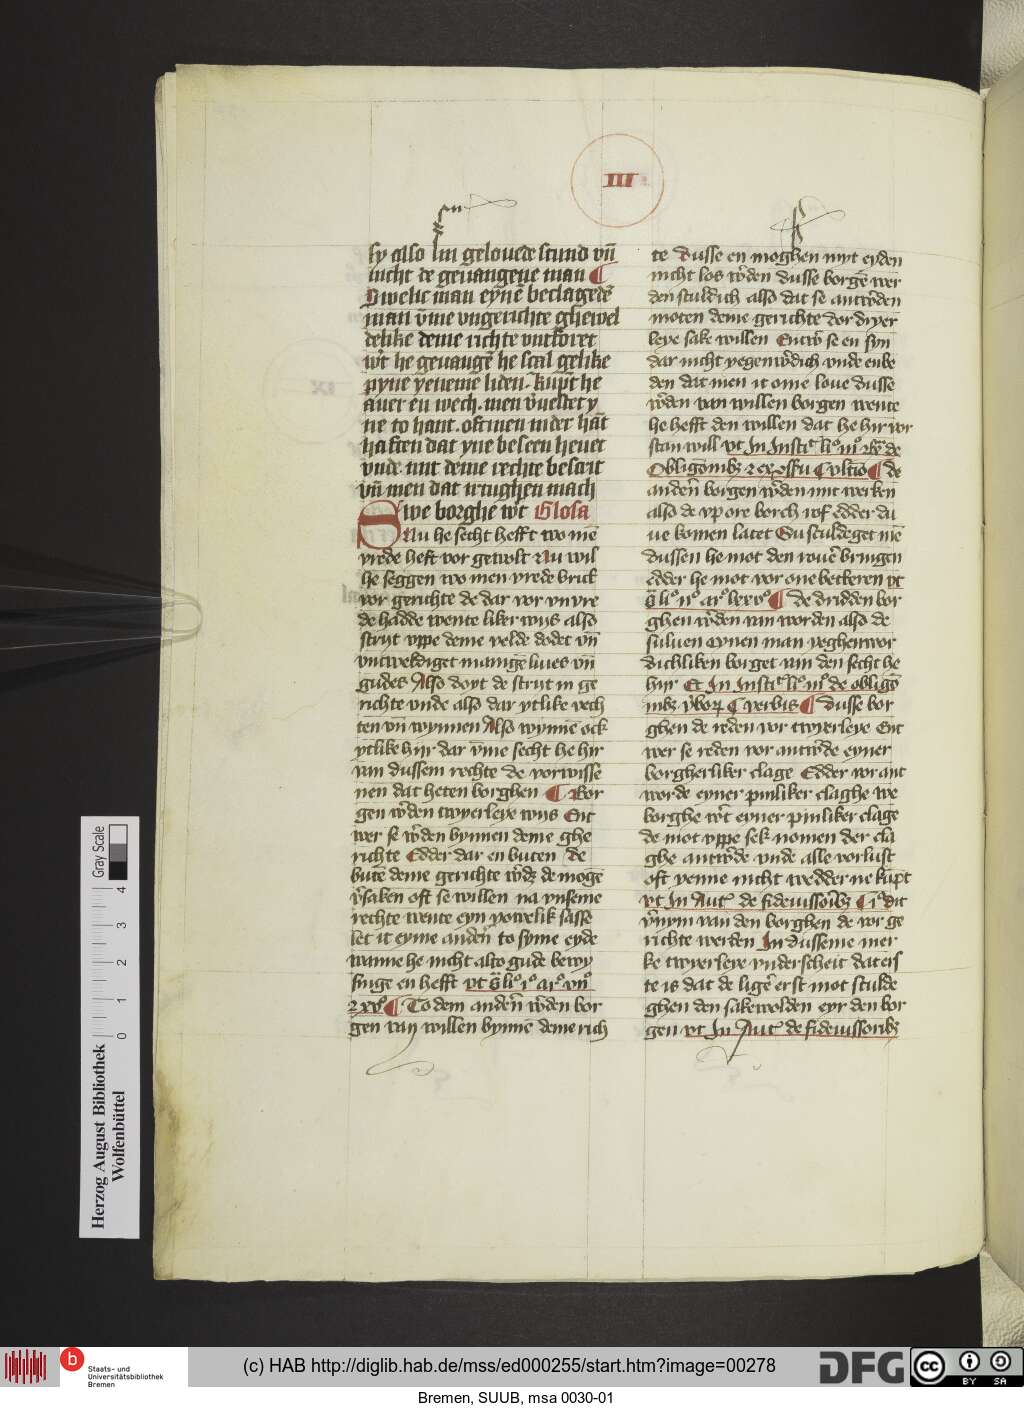 III
sy also em gelouede stund vn̄
nicht de geuangene man ¶
Swelic man eynē beclagedē
man v̄me vngerichte ghewel
delike deme richte vntforet
wͬt he geuangē he scal gelike
pyne yeneme liden. kūpt he
auer en wech. men v̄uestet y
ne to hant. oft men in der hāt
haften dat yne beseen heuet
vnde. mit deme rechte besait
vn̄ men dat irtughen mach
Swe borghe wͬt Glosa
Nu he secht hefft wo mē
vrede heft vor gewolt Nu wil
he seggen wo men vrede brict
vor gerichte de dar vor vnvre
de hadde wente liker wijs also
stryt vppe deme velde dodet vn̄
vntweldiget mānigē liues vn̄
gudes Also doyt de stryt in ge
richte vnde also dar ytlike vech
ten vn̄ wynnen Also wynnē ock
ytlike hyr dar v̄me secht he hir
van dussem rechte de vorwisse
nen dat heten borghen ¶ Bor
gen wͬden twyerleye wijs Ent
wer se wͬden bynnen deme ghe
richte Edder dar en buten De
butē deme gerichte wͬdē de mogē
v̄saken oft se willen na vnseme
rechte wente eyn yowelik sasse
let it eyme andeͬn to syme eyde
wanne he nicht alto gude bewy
singe en hefft vt
¶ To dem andeͬn wͬden bor
gen van willen bynnē deme rich
te Dusse en moghen myt eyden
nicht los wͬden dusse borgē wer
den sculdich also dat se antwͬden
moten deme gerichte dor dryer
leye sake willen Entwͬ se en syn
dar nicht yegenwͬdich vnde enbe
den dat men it ome loue dusse
wͬden van willen borgen wente
he hefft den willen dat he hir vor
stan will vt In Instͭ li° iii° de
¶ de
anderͨ borgen wͬden mit werken
also de vp ore borch wf edder da
ue komen latet Gu sculdeget mē
dussen he mot den rouēͬ bringen
edder he mot vor one beteren vt
li° ii° ar° lxxv° ¶ De dridden bor
ghen wͬden van worden also de
suluen eynen man yeghenwor
dichliken borget van den secht he
hijr Et In Instͭ li° iii° de obligō
¶ dusse bor
ghen de reden vor twyerleye Ent
wer se reden vor antwͬde eyner
borgherliker clage Edder vor ant
worde eyner pinliker claghe we
borghe wͬt eyner pinliker clage
de mot vppe sek nomen der cla
ghe antwͬde vnde alle vorlust
oft yenne nicht wedder ne kūpt
vt In Autͭ de fideiussoribꝫ C i° dit
v̄nym van den borghen de vor ge
richte werden In dusseme mer
ke twyerleye vnderscheit dat ers
te is dat de ligēͬ erst mot sculde
ghen den sakewolden eyr den bor
gen vt In Autͭ de fideiussoribꝫ
Herzog August Bibliothek
Wolfenbüttel
0 1 2 3 4
Gray Scale
b
Staats- und
Universitätsbibliothek
Bremen
(c) HAB http://diglib.hab.de/mss/ed000255/start.htm?image=00278
DFG
cc BY SA
Bremen, SUUB, msa 0030-01